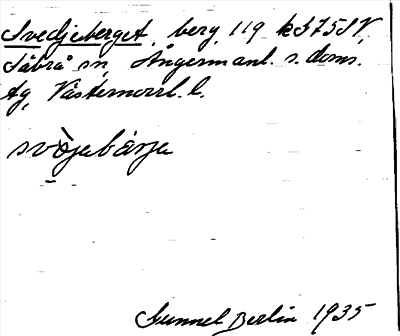 Svedjeberget, berg, 119 k375SV,
Säbrå sn, Ångermanl. s. doms.
tg, Västernorrl. l.
svèjebärje
Gunnel Berlin 1935